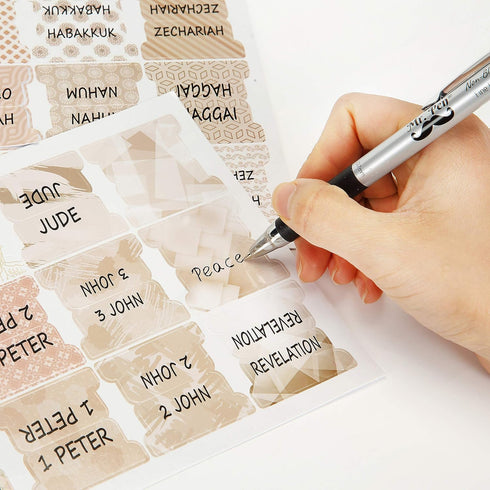 HABAKKUK
HABAKKUK
ZECHARIAH
ZECHARIAH
NAHUM
NAHUM
HAGGAI
HAGGAI
JUDE
JUDE
Peace
3 JOHN
3 JOHN
2 PETER
PETER
REVELATION
REVELATION
2 JOHN
2 JOHN
1 PETER
1 PETER
Mr. Pen